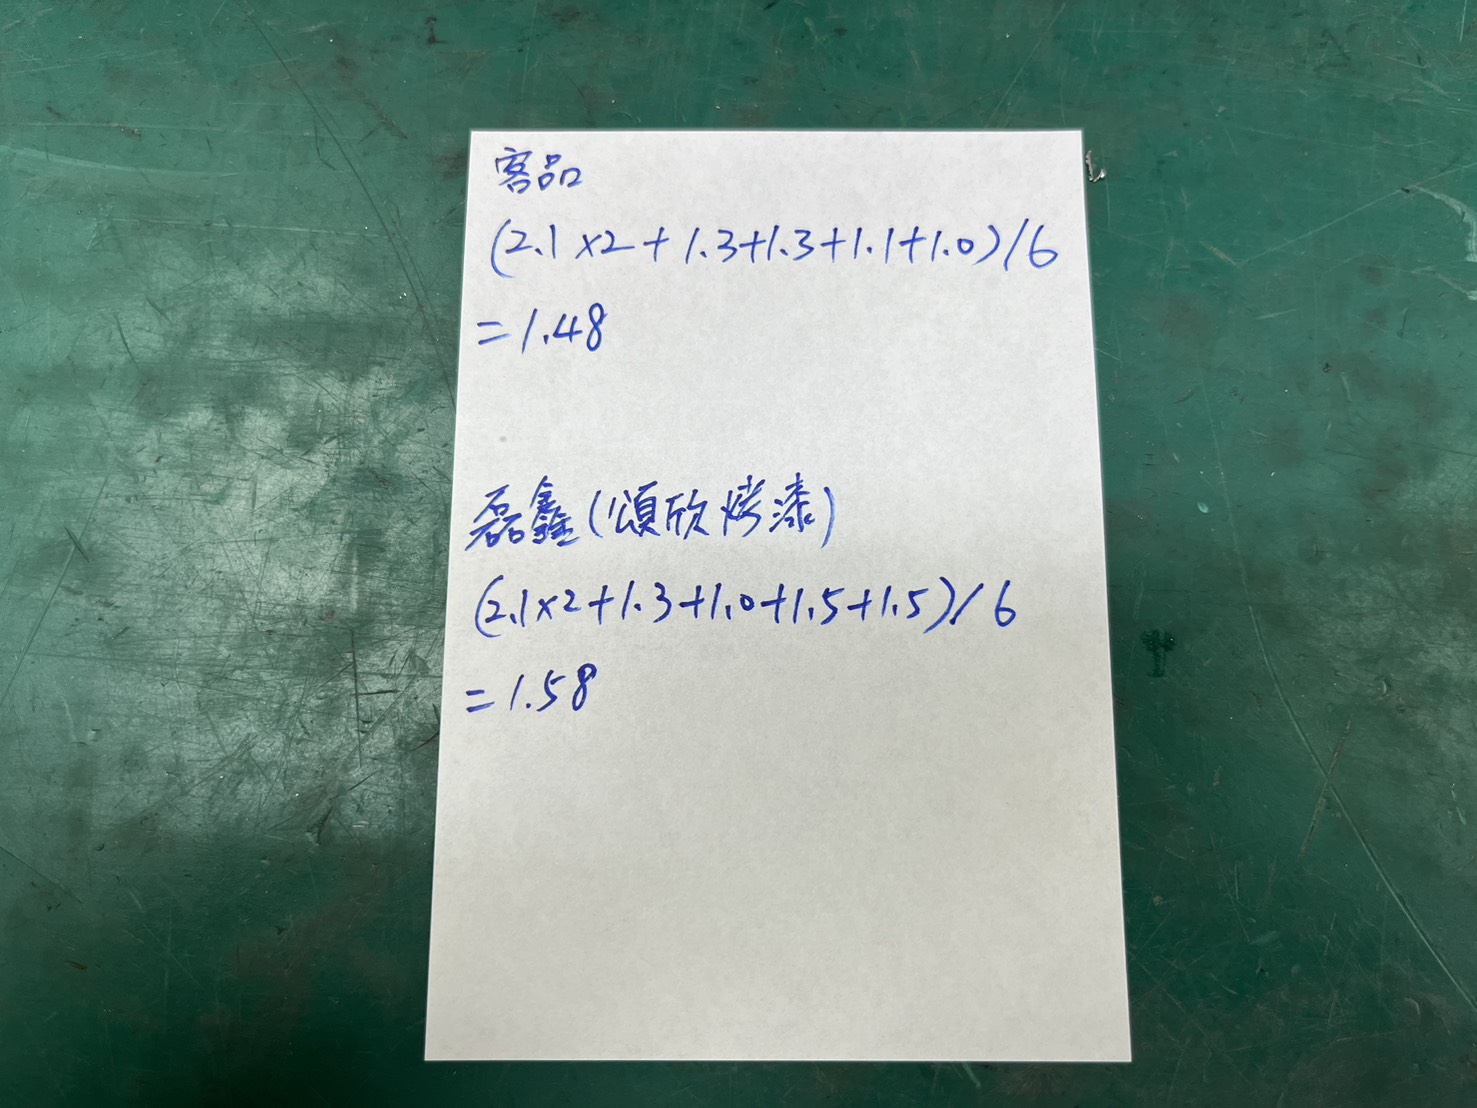 客品
(2.1×2+1.3+1.3+1.1+1.0)/6
=1.48
磊鑫(頌欣烤漆)
(2.1×2+1.3+1.0+1.5+1.5)/6
=1.58